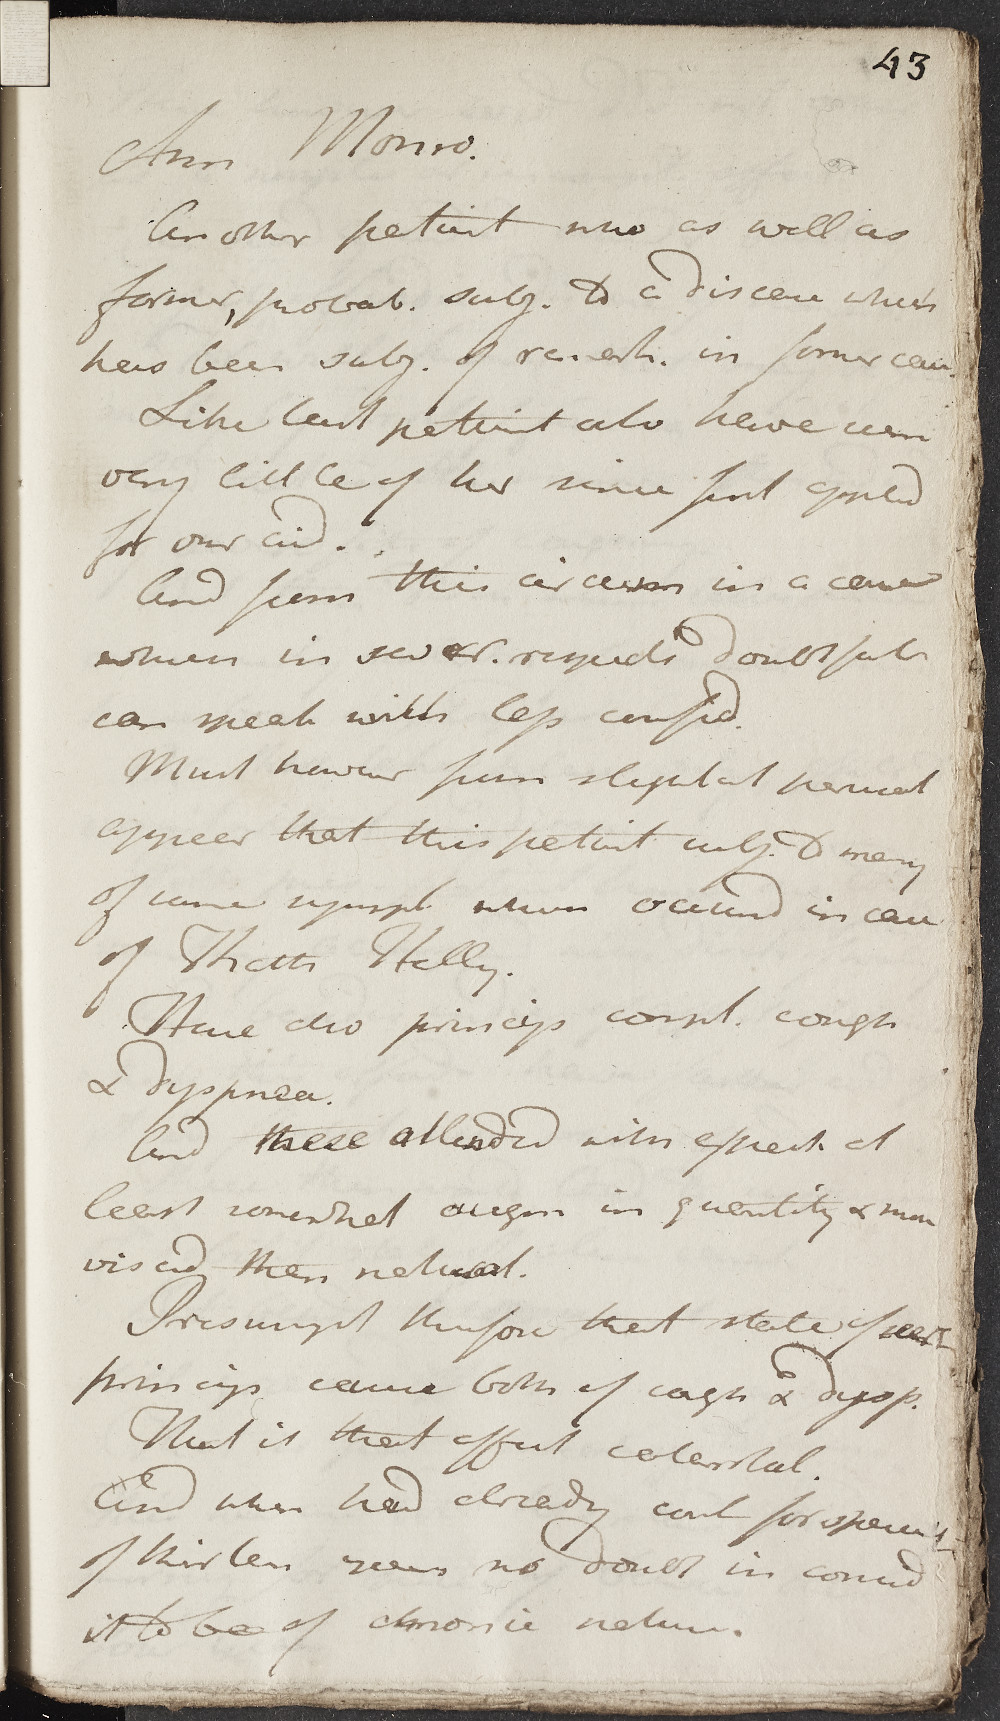 43
Ann Monro.
Another patient who as well as
former, probab. subj. to a disease which
has been subj. of remark. in former case.
Like last patient also have seen
very little of her since first applied
for our aid.
And from this circum in a case
which in sever. respects doubtfull
can speak with less confid.
Must however from slightest perusal
appear that this patient subj. to many
of same sympt. which occurred in case
of Kath Kelly.
Have also princip compl. cough
& dyspnea.
And these attended with expect. at
least somewhat augm in quantity & more
viscid than natural.
Presumpt therefore that state of
princip cause both of cough & dysp.
That is that affect catarrhal.
And when had already cont for space
of thirteen years no doubt in consid
it to be of chronic nature.